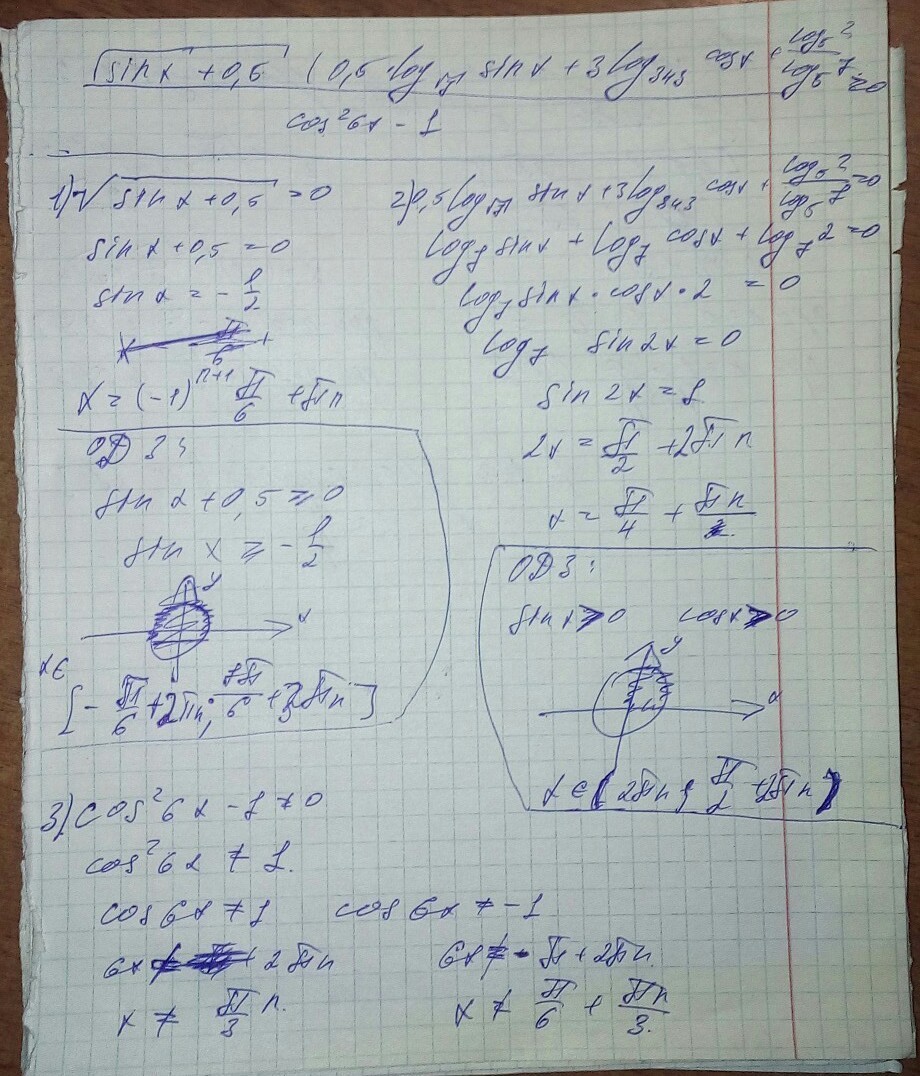 √(sin x + 0,5) (0,5 · log₁₇ sin x + 3 log₃₄₃ cos x + log₅2/log₅7 = 0
cos²6x - 1
1) √(sin x + 0,5) = 0
sin x + 0,5 = 0
sin x = - 1/2
x = (-1)ⁿ⁺¹ π/6 + πn
ОДЗ:
sin x + 0,5 ≥ 0
sin x ≥ - 1/2
y
x
x ∈
[- π/6 + 2πn; 7π/6 + 2πn]
2) 0,5 log₁₇ sin x + 3 log₃₄₃ cos x + log₅2/log₅7 = 0
log₇ sin x + log₇ cos x + log₇ 2 = 0
log₇ sin x · cos x · 2 = 0
log₇ sin 2x = 0
sin 2x = 1
2x = π/2 + 2πn
x = π/4 + πn
ОДЗ:
sin x > 0 cos x > 0
y
x
x ∈ (2πn; π/2 + 2πn)
3) cos²6x - 1 ≠ 0
cos²6x ≠ 1.
cos 6x ≠ 1 cos 6x ≠ -1
6x ≠ 2πn 6x ≠ - π + 2πn.
x ≠ π/3 n. x ≠ π/6 + πn/3.